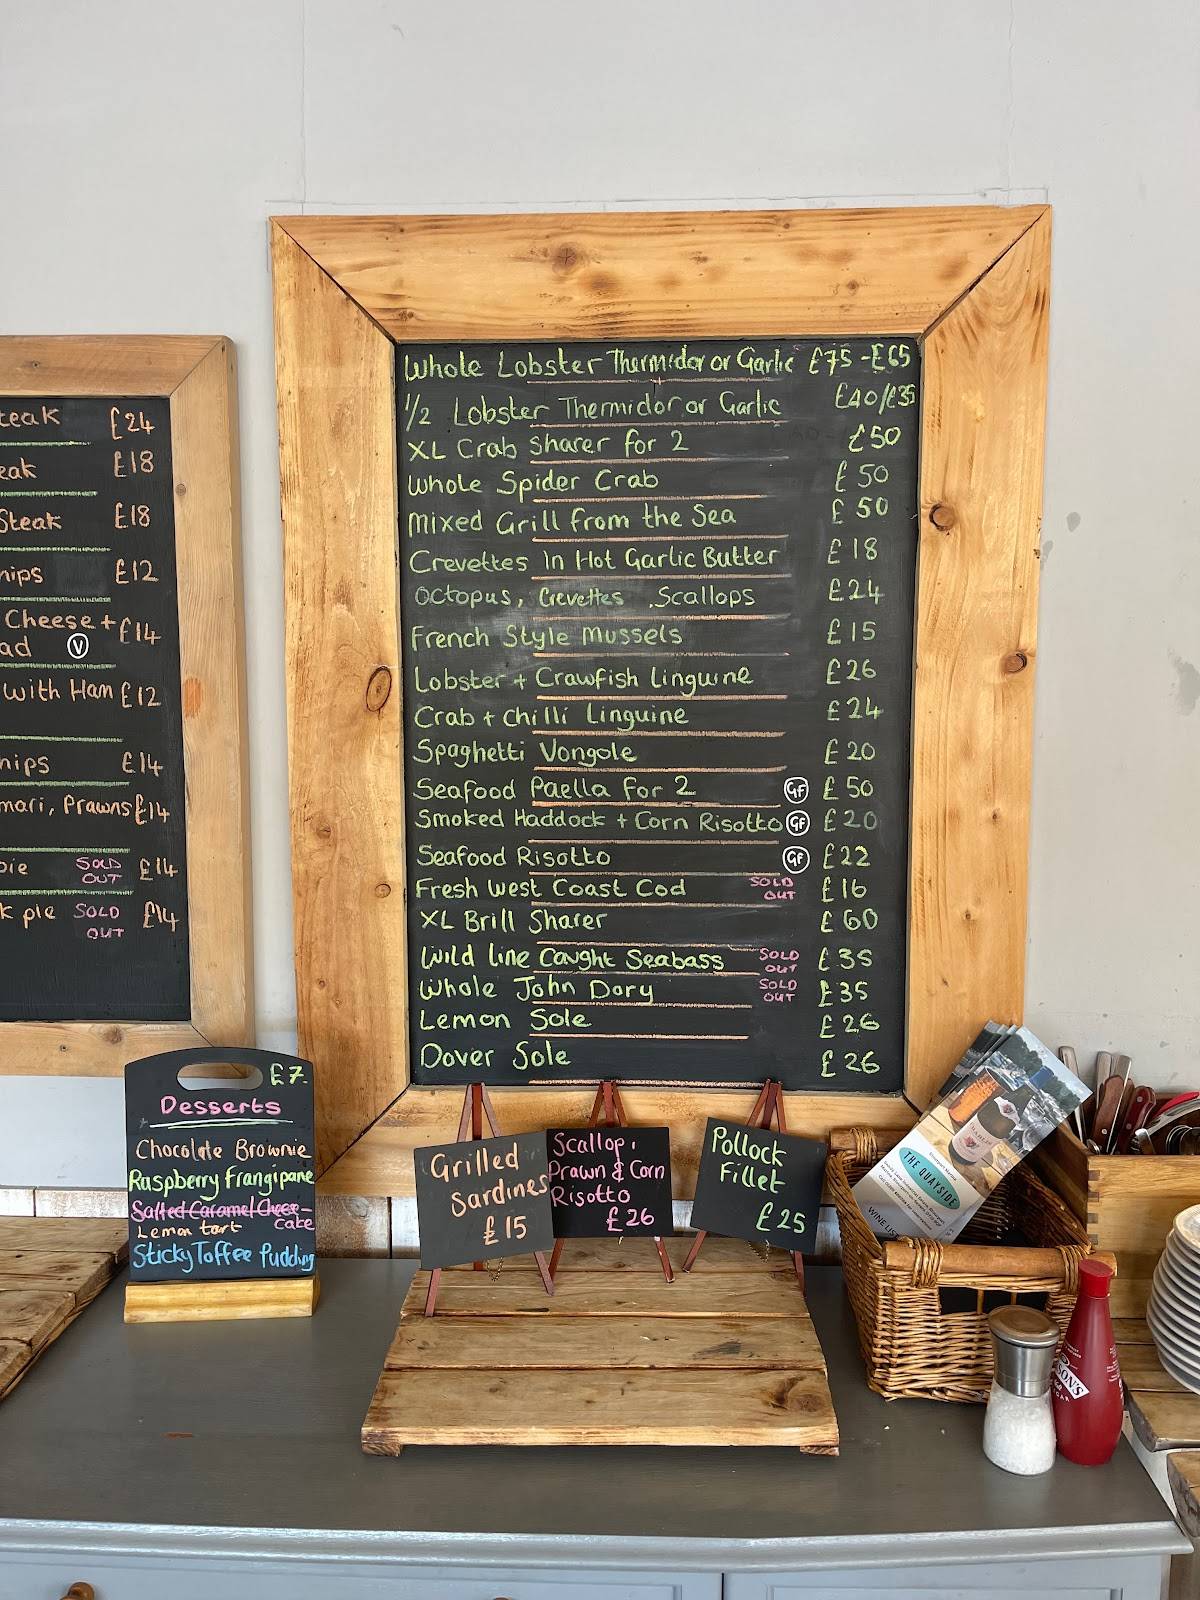 teak £24
eak £18
Steak £18
hips £12
Cheese + £14
ad V
with Ham £12
hips £14
mari, Prawns £14
pie SOLD OUT £14
k pie SOLD OUT £14
Whole Lobster Thermidor or Garlic £75 - £65
1/2 Lobster Thermidor or Garlic £40/£35
XL Crab Sharer for 2 £50
Whole Spider Crab £50
Mixed Grill from the Sea £50
Crevettes in Hot Garlic Butter £18
Octopus, Crevettes, Scallops £24
French Style Mussels £15
Lobster + Crawfish Linguine £26
Crab + Chilli Linguine £24
Spaghetti Vongole £20
Seafood Paella for 2 GF £50
Smoked Haddock + Corn Risotto GF £20
Seafood Risotto GF £22
Fresh West Coast Cod SOLD OUT £16
XL Brill Sharer £60
Wild Line Caught Seabass SOLD OUT £35
Whole John Dory SOLD OUT £35
Lemon Sole £26
Dover Sole £26
£7.
Desserts
Chocolate Brownie
Raspberry Frangipane
Salted Caramel Cheese-
cake
Lemon tart
Sticky Toffee Pudding
Grilled
Sardines
£15
Scallop,
Prawn & Corn
Risotto
£26
Pollock
Fillet
£25
THE QUAYSIDE
WINE LIST
SON'S